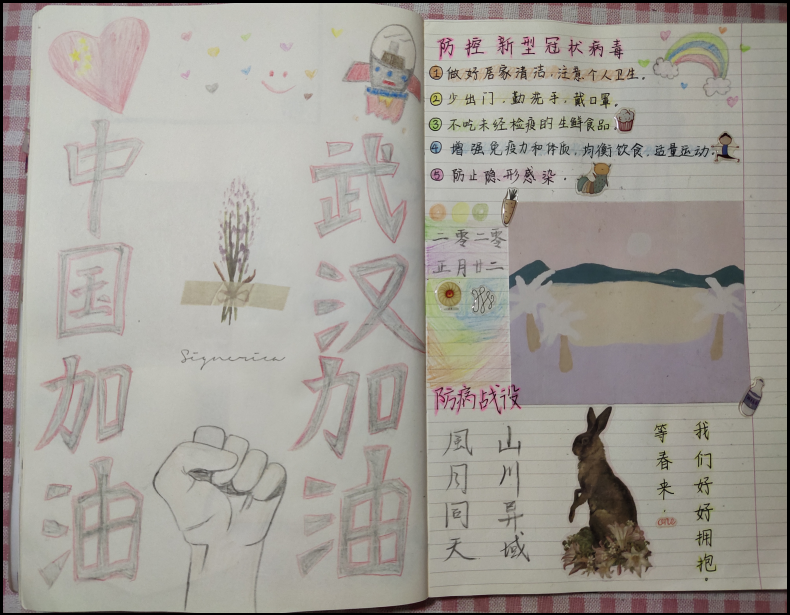 武汉加油
中国加油
Signerica
防控新型冠状病毒
①做好居家清洁,注意个人卫生。
②少出门,勤洗手,戴口罩。
③不吃未经检疫的生鲜食品。
④增强免疫力和体质,均衡饮食,适量运动。
⑤防止隐形感染。
二零二零
正月廿二
防病战设
山川异域
風月同天
等春来.
我们好好拥抱。